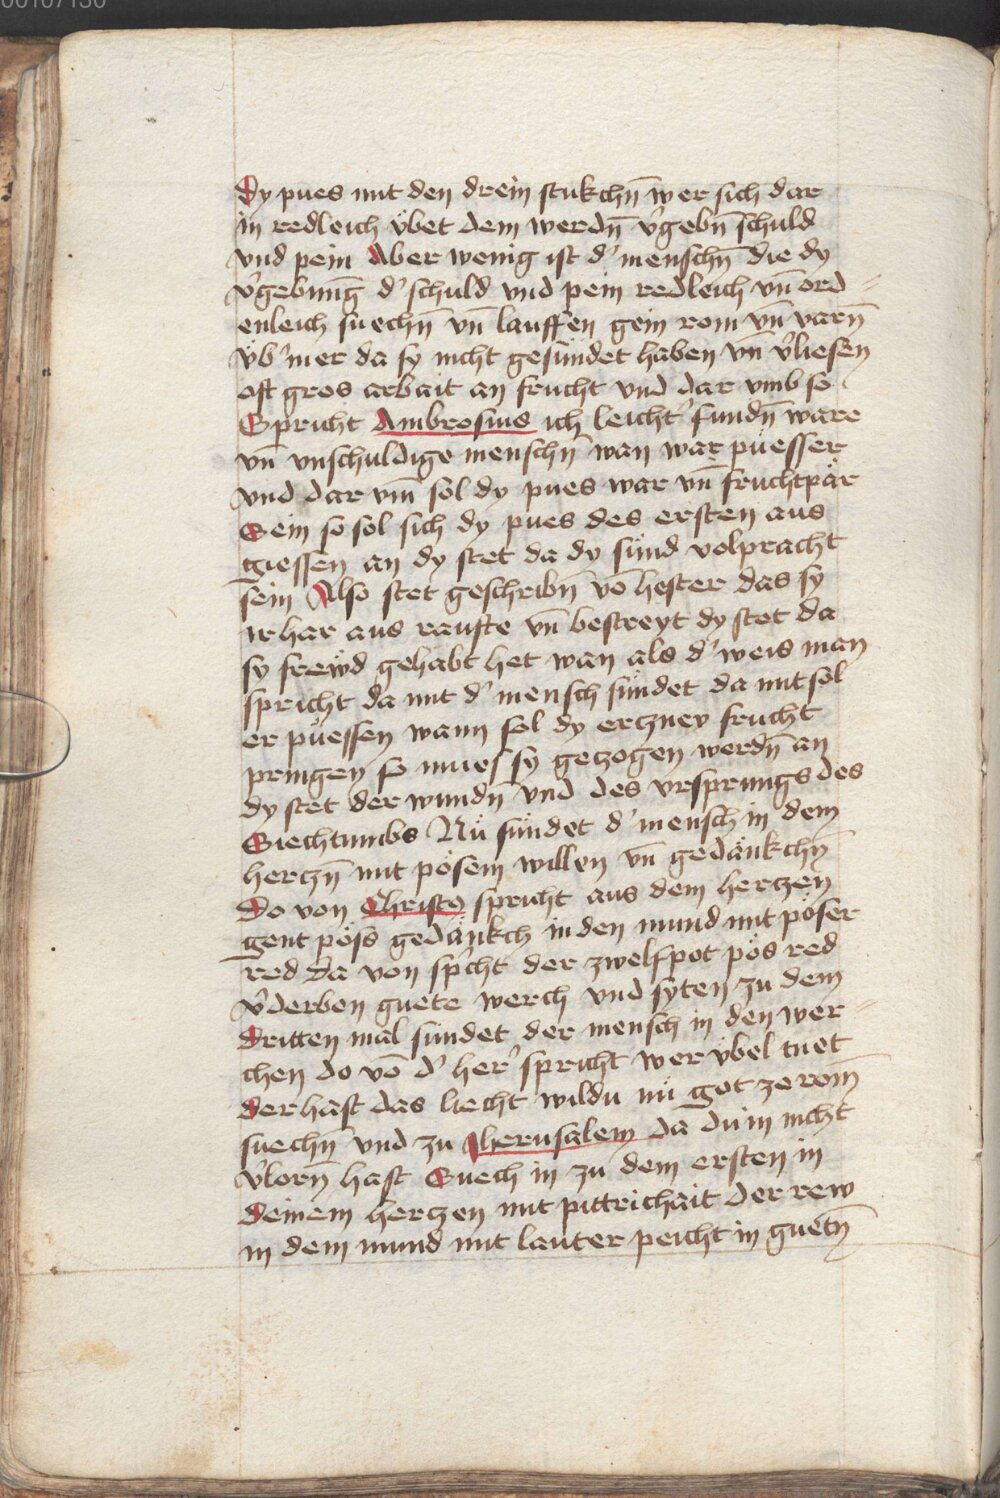 00107130
Dy pues mit den drein stukchn̄ wer sich dar
in redleich vͤbet dem werdn̄ v̾gebn̄ schuld
vnd pein Aber wenig ist d̾ menschn̄ die dy
v̾gebūng d̾ schuld vnd pein redleich vn̄ ord
enleich suechn̄ vn̄ lauffen gein rom vn̄ varn̄
vͤb̾ mer da sy nicht gesündet haben vn̄ v̾liesen
oft gros arbait an frucht vnd dar vmb so
Spricht Ambrosius ich leicht̾ fundn̄ ware
vn̄ vnschuldige menschn̄ wan war püesser
vnd dar vm̄ sol dy pues war vn̄ fruchtpär
Sein so sol sich dy pues des ersten aus
giessen an dy stet da dy sünd volpracht
sein Also stet geschribn̄ vō hester das sy
ir har aus raufte vn̄ bestreyt dy stet da
sy frewd gehabt het wan als d̾ weis man
spricht da mit d̾ mensch sündet da mit sol
er püessen wann sol dy erczney frucht
pringen so mues sy geczogen werdn̄ an
dy stet der wundn̄ vnd des vrsprungs des
Siechtumbs Nü sündet d̾ mensch in dem
herczn̄ mit pösem willen vn̄ gedänkchn̄
Do von Christo spricht aus dem herczen
gent pöss gedänkch in den mund mit pöser
red da von sp̾cht der zwelfpot pös red
v̾derben guete werch vnd syten zu dem
dritten mal sündet der mensch in den wer
chen do vō d̾ her̾ spricht wer vͤbel tuet
der hast das liecht wildu nü got ze rom
suechn̄ vnd zu Iherusalem da du in nicht
v̾lorn̄ hast Suech in zu dem ersten in
deinem herczen mit pittrichait der rew
in dem mund mit lauter peicht in guetn̄